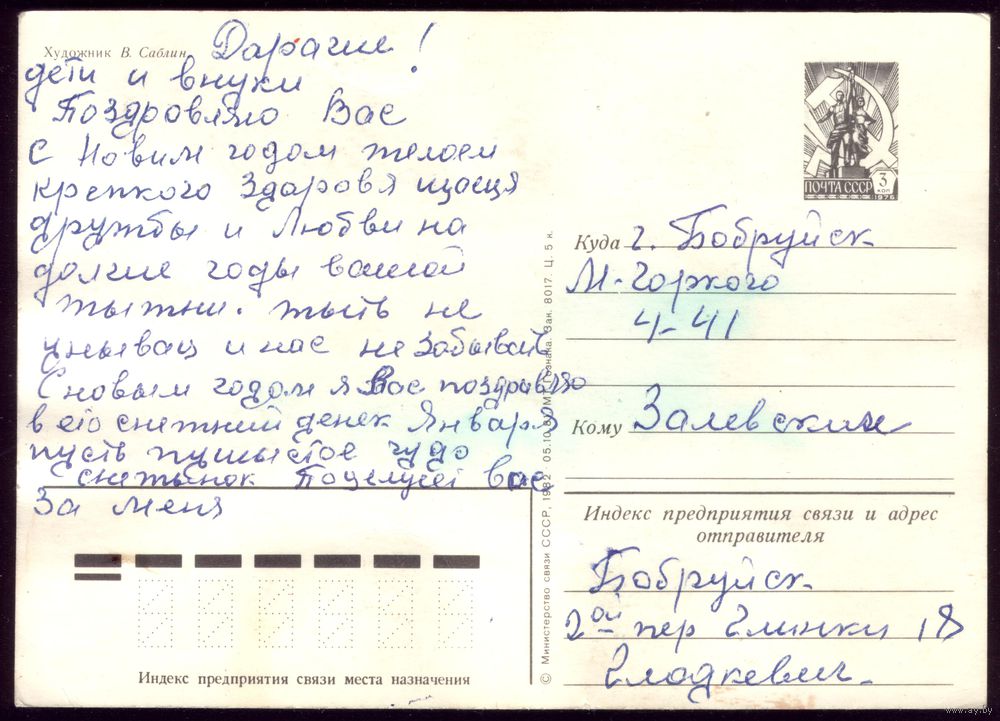 Художник В. Саблин
Дарагие!
дети и внуки
Поздровляю Вас
С Новим годом желоем
крепкого здаровя щасця
дружбы и Любви на
долгие годы вашой
жызни. жыть не
унывац и нас не забывайть
С новым годом я Вас поздравляю
в его снежний денек Январь
пусть пушыстое чудо
снежынок Поцелует вас
За меня
Индекс предприятия связи места назначения
© Министерство связи СССР, 1982 05.10.82 МТ Гознака. Зак. 8017. Ц. 5 к.
ПОЧТА СССР 3 КОП
1976
Куда г. Бобруйск
М-Горкого
4-41
Кому Залевским
Индекс предприятия связи и адрес
отправителя
Бобруйск
2ой пер Глинки 18
Гладкевич.
www.ay.by